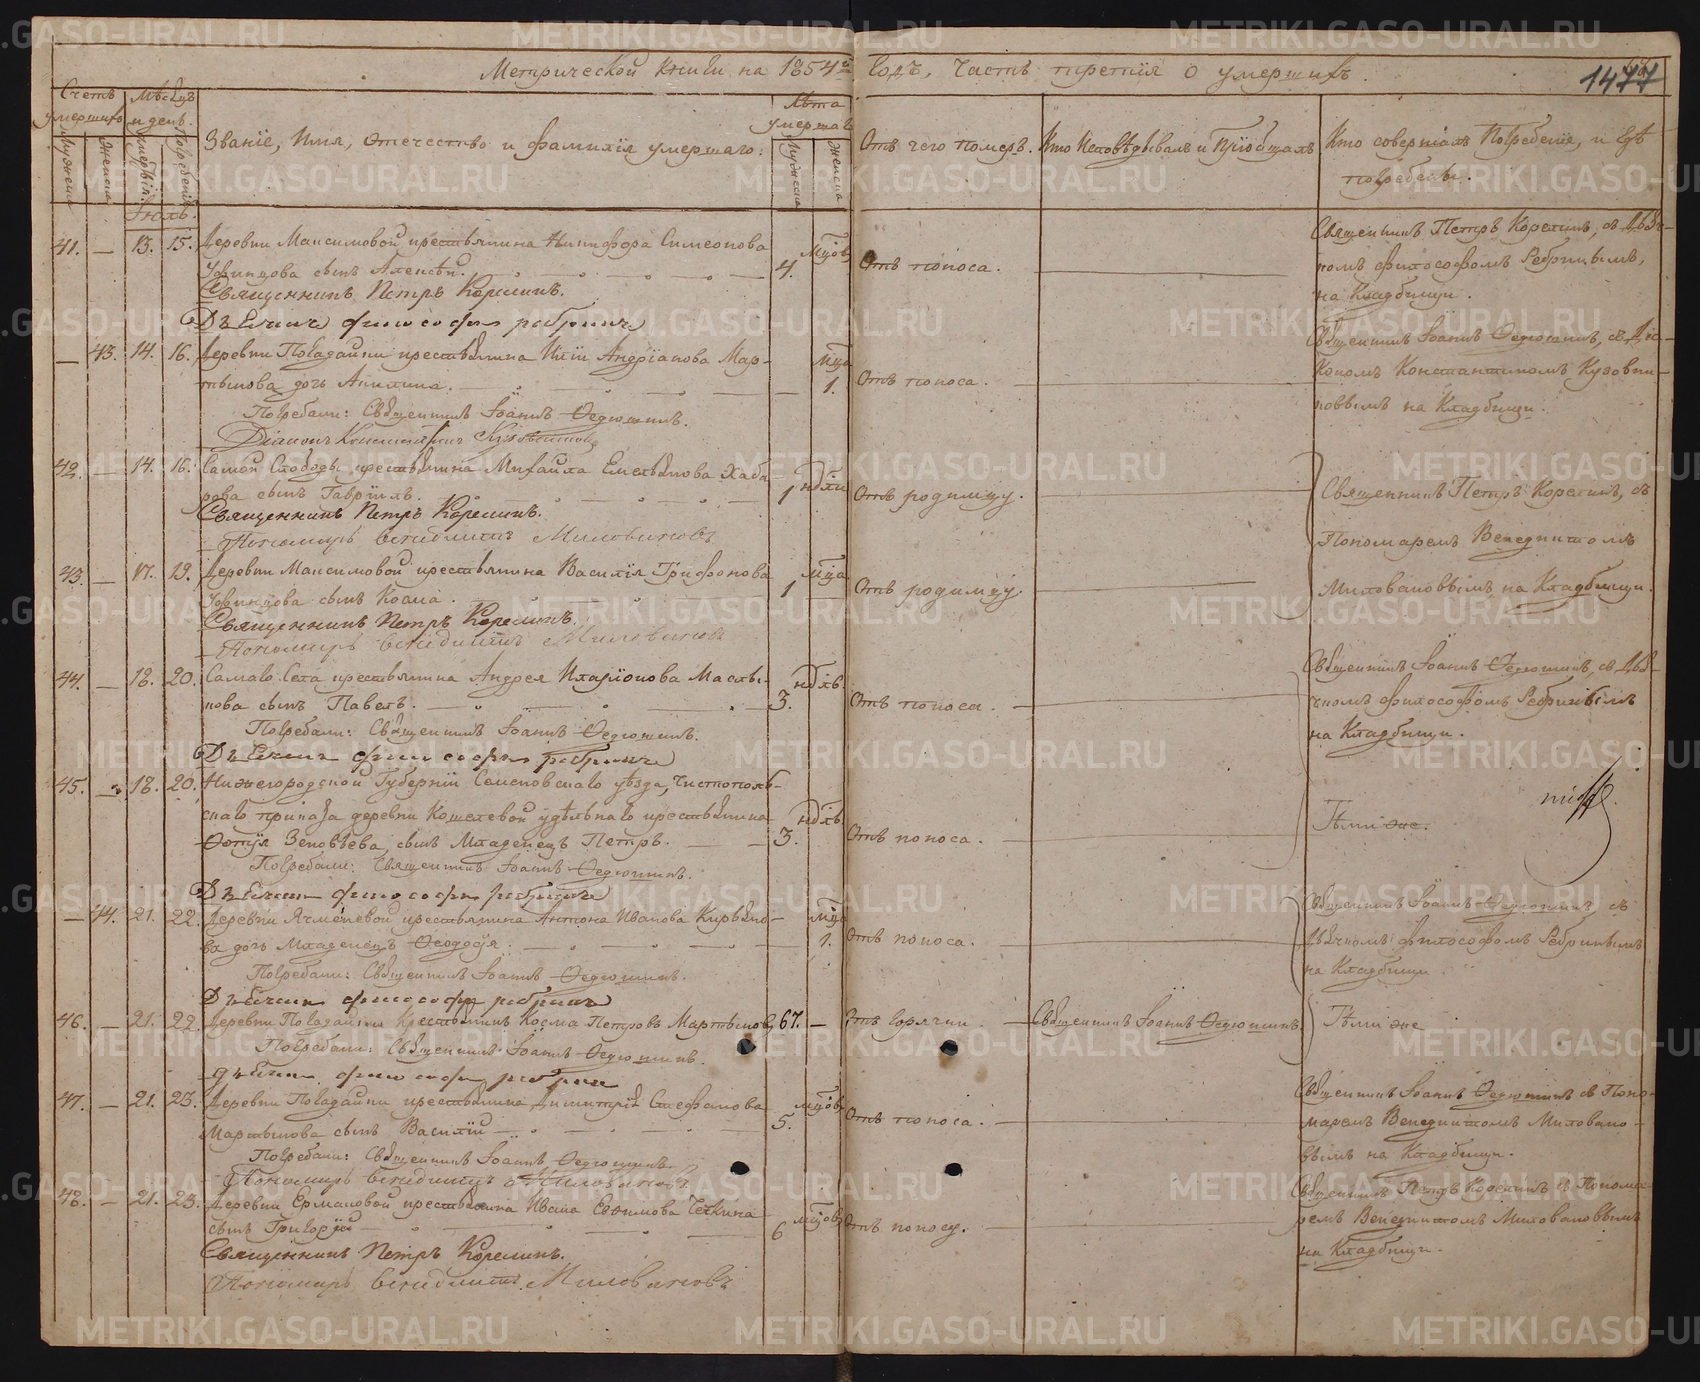 Метрической книги на 1854й годъ, часть третія о умершихъ.
1477
Счетъ умершихъ
Мужеска
Женска
Мѣсяцъ и день.
Смерти
Погребенія
Званіе, Имя, отечество и фамилія умершаго.
Лѣта умершаго
Мужеска
Женска
Отъ чего померъ.
Кто Исповѣдывалъ и Пріобщалъ
Кто совершалъ Погребеніе, и Гдѣ
погребены.
Іюль.
41. — 13. 15. Деревни Максимовой крестьянина Никифора Симеонова
сынъ Алексѣй. 4. Мцовъ Отъ поноса.
Священникъ Петръ Корелинъ, съ Дья-
комъ философомъ Ребринымъ,
на Кладбищи.
Священникъ Петръ Корелинъ.
Дьячекъ философъ ребринъ
— 43. 14. 16. Деревни Погадайки крестьянина Андріанова Мар-
тынова дочь Акилина. Мца 1. Отъ поноса.
Священникъ Іоаннъ Ѳедюшинъ, съ Діа-
кономъ Константиномъ Кузовни-
ковымъ на Кладбищи.
Погребали: Священникъ Іоаннъ Ѳедюшинъ.
Діаконъ Константинъ Кузовниковъ
42. — 14. 16. Самой Слободы крестьянина Михаила Емельянова Хаба-
рова сынъ Гавріилъ. 1 ндѣли Отъ родимцу.
Священникъ Петръ Корелинъ, съ
Пономаремъ Венедиктомъ
Миловановымъ, на Кладбищи.
Священникъ Петръ Корелинъ.
Пономарь Венедиктъ Миловановъ
43. — 17. 19. Деревни Максимовой крестьянина Василія Трифонова
сынъ Козма. 1 мца Отъ родимцу.
Священникъ Петръ Корелинъ.
Пономарь Венедиктъ Миловановъ
44. — 18. 20. Самаго Села крестьянина Андрея Иларіонова Маслы-
кова сынъ Павелъ. 3. ндѣль Отъ поноса.
Священникъ Іоаннъ Ѳедюшинъ, съ Дья-
чкомъ философомъ Ребринымъ
на Кладбищи.
Погребали: Священникъ Іоаннъ Ѳедюшинъ.
Дьячекъ философъ ребринъ
45. — 18. 20. Нижегородской Губерніи Семеновскаго уѣзда, Чистополь-
скаго приказа деревни Кошелевой удѣльнаго крестьянина
Зеновѣева, сынъ Младенецъ Петръ. 3. ндѣль Отъ поноса.
Тѣми же.
Погребали: Священникъ Іоаннъ Ѳедюшинъ.
Дьячекъ философъ ребринъ
— 44. 21. 22. Деревни Ячменевой крестьянина Антона Иванова Кирьяно-
ва дочь Младенецъ Ѳеодосія. мца 1. Отъ поноса.
Священникъ Іоаннъ Ѳедюшинъ, съ
Дьячкомъ философомъ Ребринымъ
на Кладбищи
Погребали: Священникъ Іоаннъ Ѳедюшинъ.
Дьячекъ философъ ребринъ
46. — 21. 22. Деревни Погадайки Крестьянинъ Козма Петровъ Мартыновъ 67. — Отъ горячки.
Священникъ Іоаннъ Ѳедюшинъ.
Тѣми же
Погребали: Священникъ Іоаннъ Ѳедюшинъ.
Дьячекъ философъ ребринъ
47. — 21. 23. Деревни Погадайки крестьянина Димитрія Стефанова
Мартынова сынъ Василій 5. мцовъ Отъ поноса.
Священникъ Іоаннъ Ѳедюшинъ съ Поно-
маремъ Венедиктомъ Миловано-
вымъ на Кладбищи.
Погребали: Священникъ Іоаннъ Ѳедюшинъ.
Пономарь Венедиктъ Миловановъ
48. — 21. 23. Деревни Ермаковой крестьянина Ивана Евфимова Чечкина
сынъ Григорій 6 мцовъ Отъ поносу.
Священникъ Петръ Корелинъ съ Понома-
ремъ Венедиктомъ Миловановымъ
на Кладбищи.
Священникъ Петръ Корелинъ.
Пономарь Венедиктъ Миловановъ
METRIKI.GASO-URAL.RU